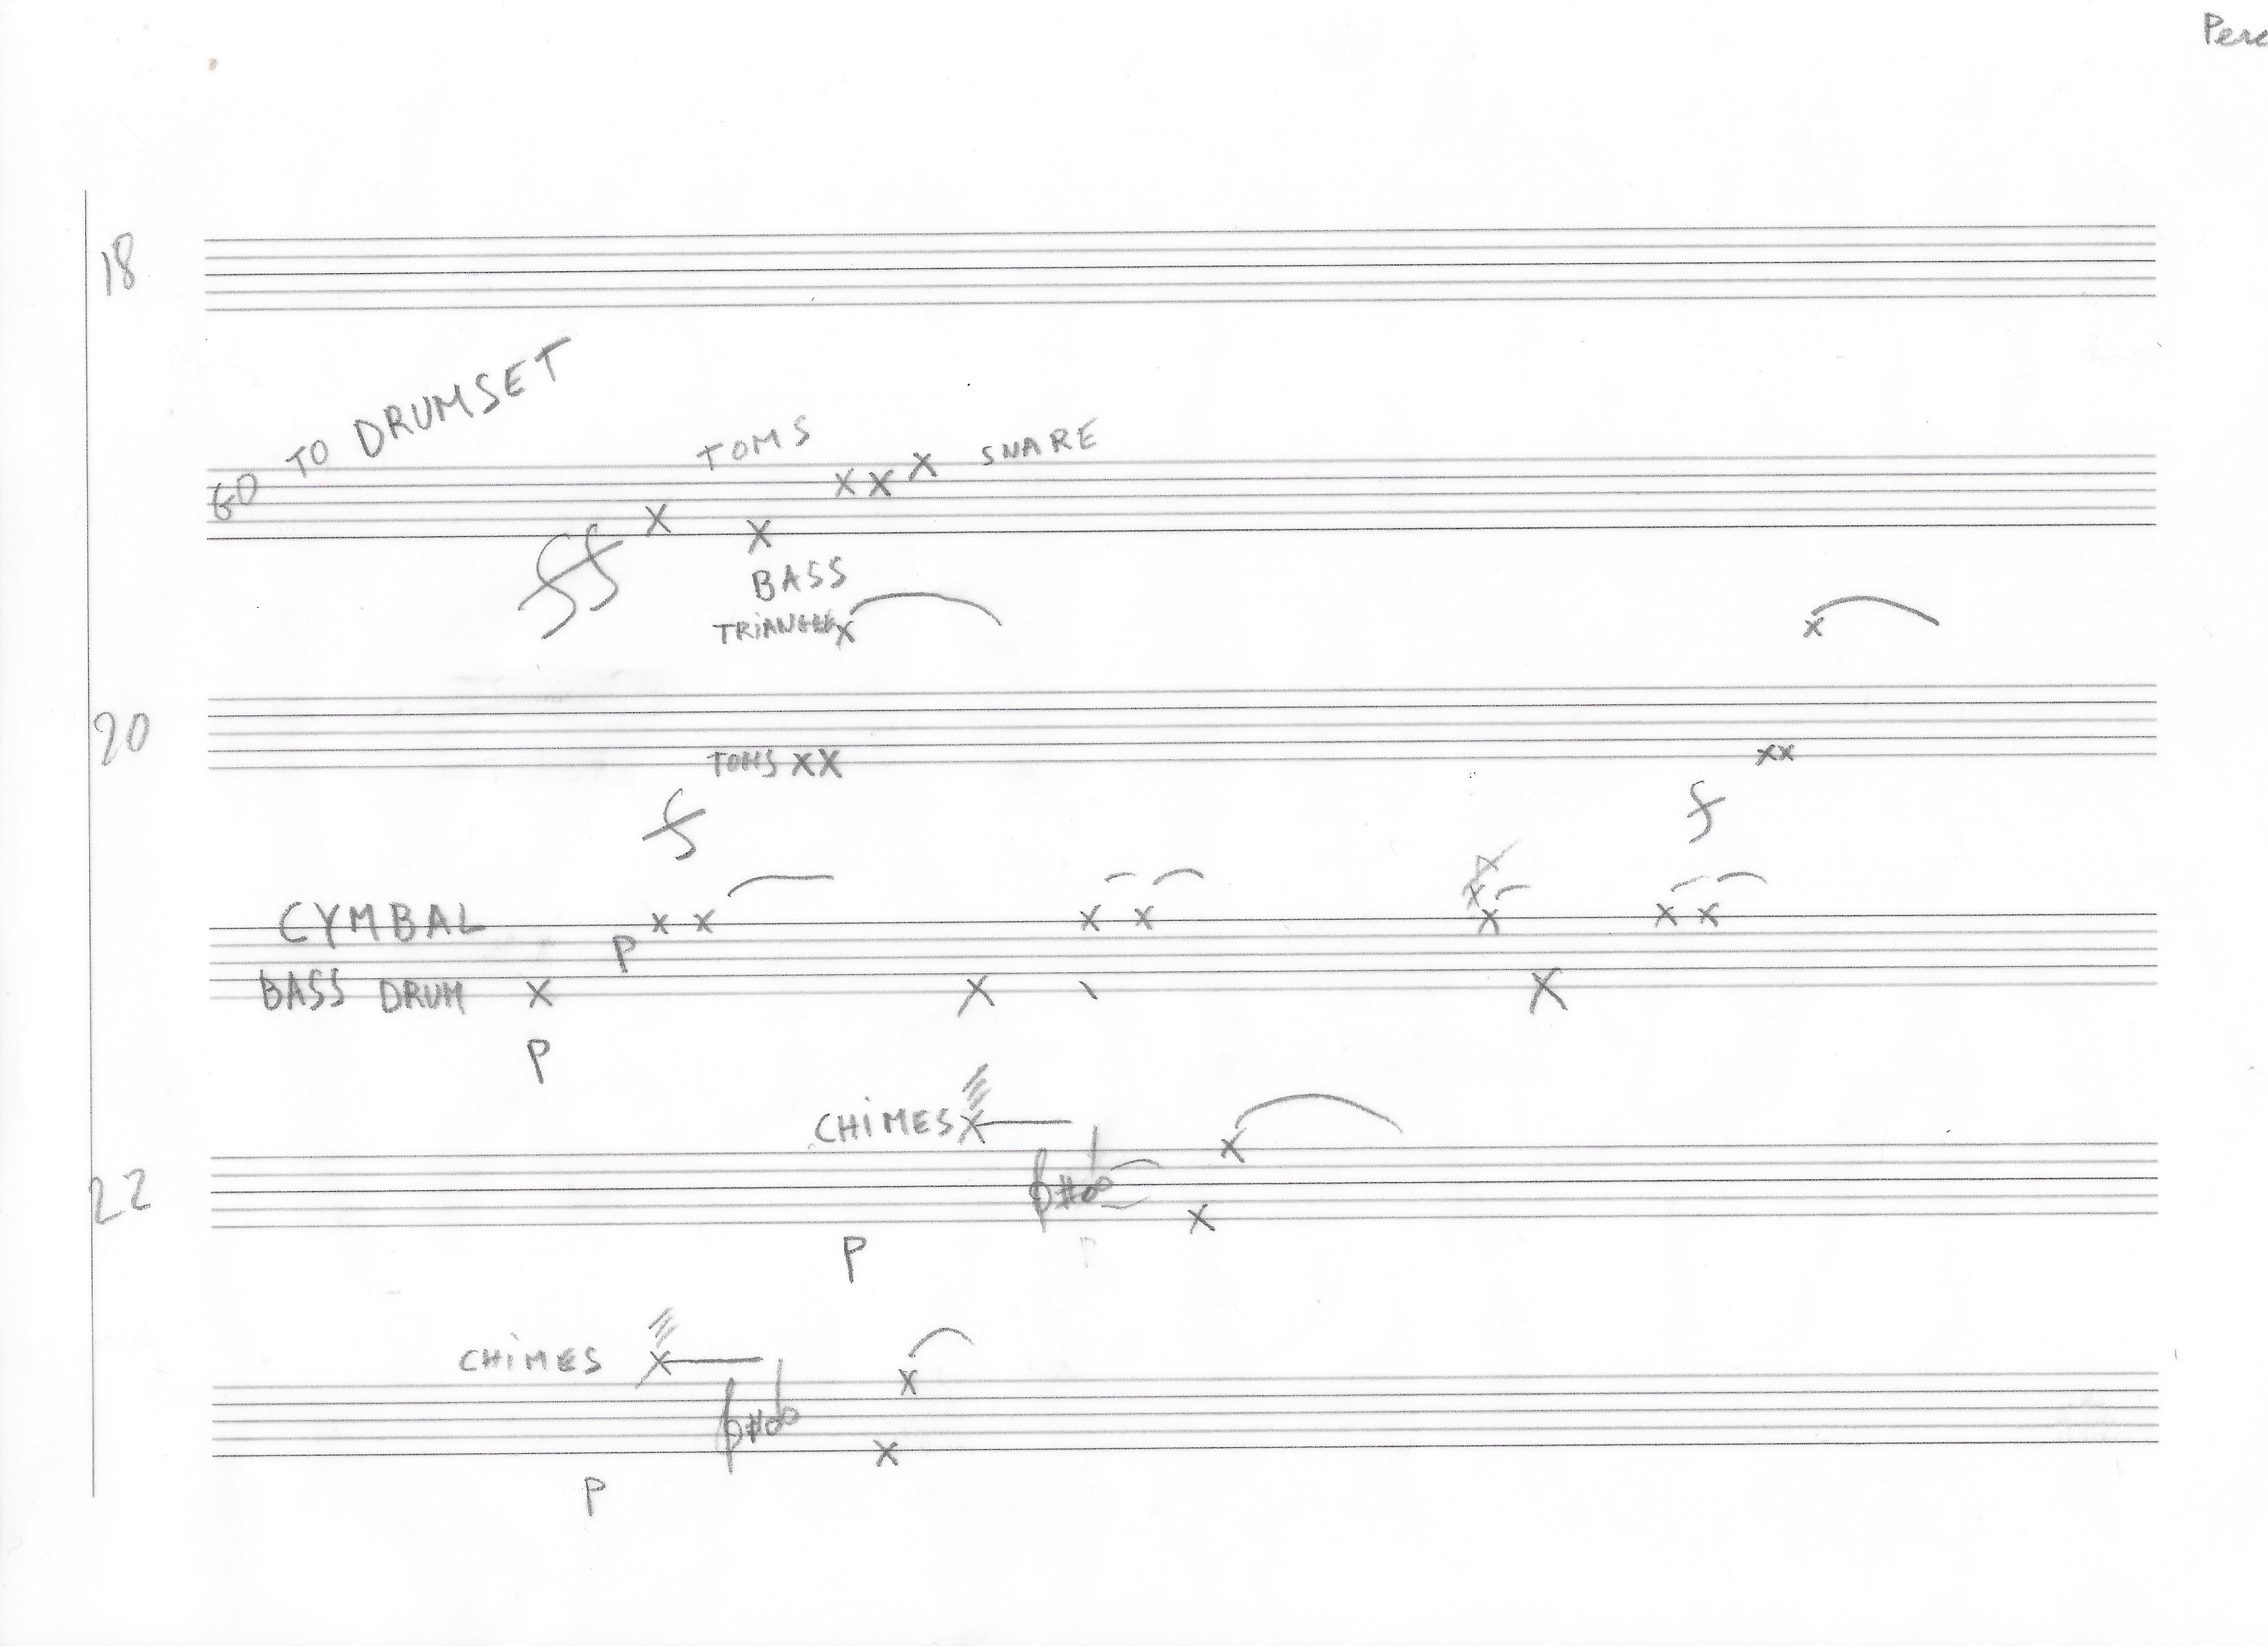 Perc
18
GO TO DRUMSET
TOMS
SNARE
ff
BASS
TRiANGLE
20
TOMS
f
f
CYMBAL
P
BASS DRUM
P
CHiMES
22
P
P
CHiMES
P